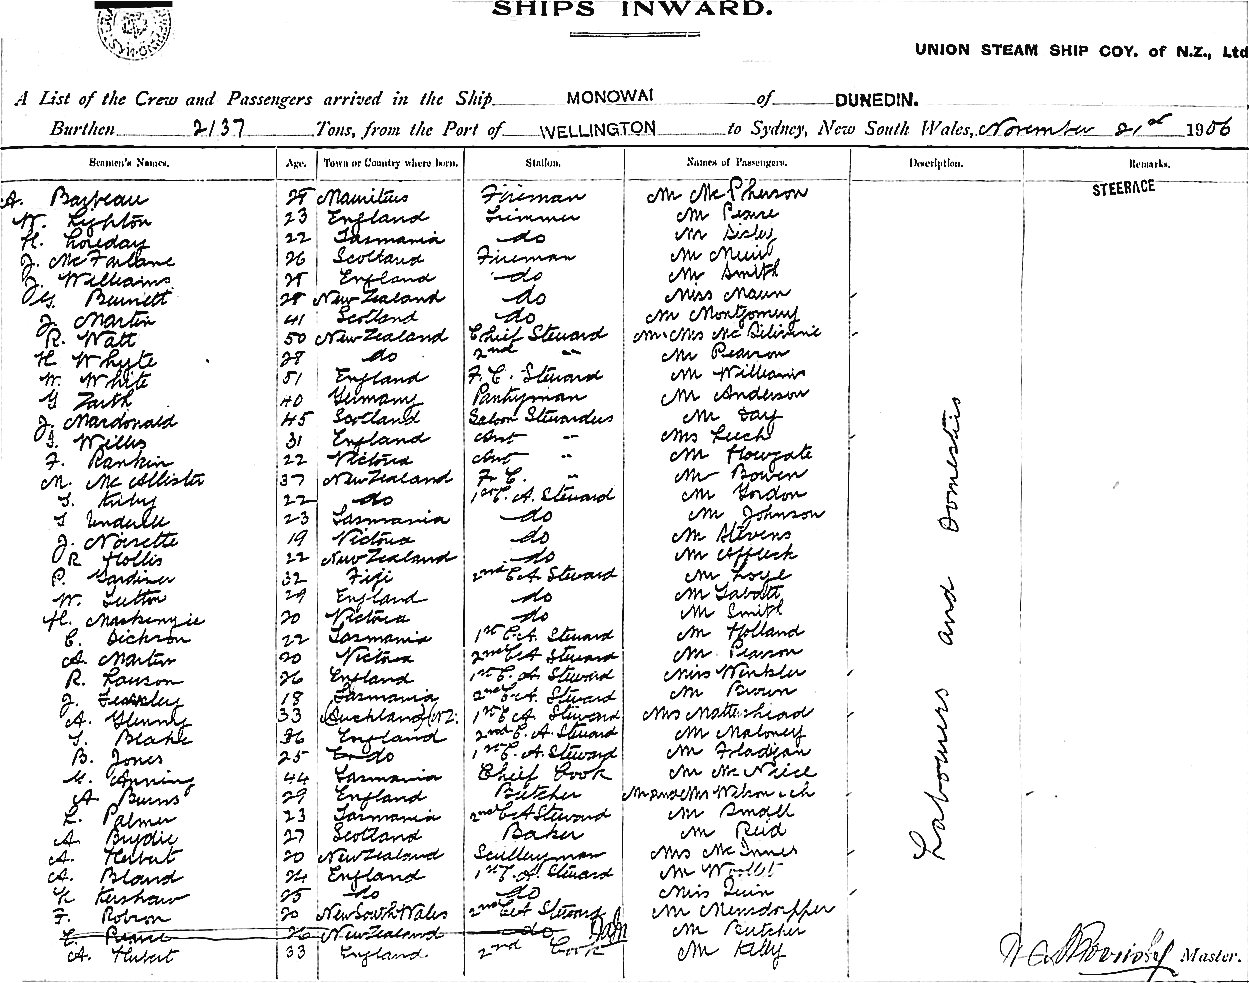 SHIPS INWARD.
UNION STEAM SHIP COY. of N.Z., Ltd
A List of the Crew and Passengers arrived in the Ship MONOWAI of DUNEDIN.
Burthen 2137 Tons, from the Port of WELLINGTON to Sydney, New South Wales, November 21st 1906
Seamen's Names. Age. Town or Country where born. Station. Names of Passengers. Description. Remarks.
STEERAGE
A. 29 Mauritius Fireman Mr McPherson
W. Lighton 23 England Trimmer Mr
H. Loveday 22 Tasmania do Mr
J. McFarlane 26 Scotland Fireman Mr Muir
J. Williams 25 England do Mr Smith
G. Burnett 28 New Zealand do Miss Mann
J. Martin 41 Scotland do Mr Montgomery
R. Watt 50 New Zealand Chief Steward Mr & Mrs
H Whyte 28 do 2nd " Mr Pearson
W. White 51 England F. C. Steward Mr Williams
G 40 Germany Pantryman Mr Anderson
J. Macdonald 45 Scotland Saloon Stewardess Mr Day
S. Willis 31 England Asst " Mrs Leech
F. Rankin 22 Victoria Asst " Mr Howgate
M. McAllister 37 New Zealand F. C. " Mr Bowen
22 do 1st C. A. Steward Mr Gordon
23 Tasmania do Mr Johnson
J. Noisette 19 Victoria do Mr Stevens
R Hollis 22 New Zealand do Mr Affleck
P. Gardiner 32 Fiji 2nd C. A. Steward Mr
W. Sutton 29 England do Mr
H. Mackenzie 20 Victoria do Mr Smith
C. Dickson 22 Tasmania 1st C. A. Steward Mr Holland
A. Martin 20 Victoria 2nd C A Steward Mr Pearson
R. Lawson 26 England 1st C. A. Steward Miss Winkler
J. 18 Tasmania 2nd C. A. Steward Mr Brown
A. Glenny 33 Auckland (NZ. 1st C A. Steward Mrs Mattershead
Blake 36 England 2nd C. A. Steward Mr Maloney
B. Jones 25 do 1st C. A. Steward Mr
Anning 44 Tasmania Chief Cook Mr McNeice
A Burns 29 England Butcher Mr and Mrs
Palmer 23 Tasmania 2nd C A Steward Mr Small
A. Brydie 27 Scotland Baker Mr Reid
A. Herbert 20 New Zealand Sculleryman Mrs McInnes
A. Bland 24 England 1st C. A. Steward Mr
K Kershaw 25 do do Miss Quin
F. Robson 20 New South Wales 2nd C A Steward Mr Mensdorffer
C. Pearce 26 New Zealand do Mr Butcher
A. Herbert 33 England. 2nd Cook Mr Kelly
Labourers and Domestics
Master.